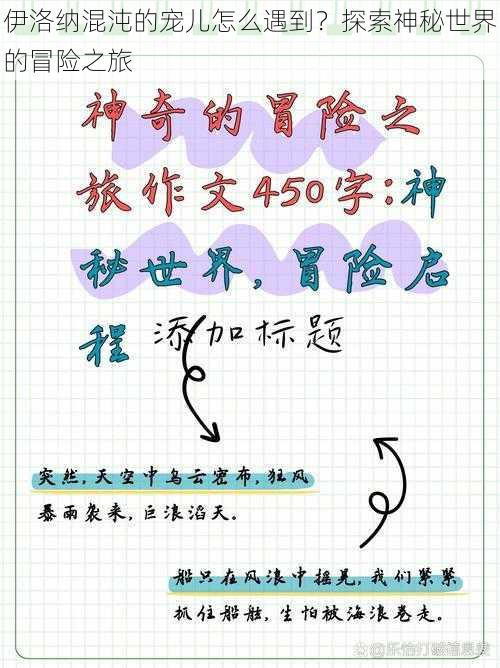 伊洛纳混沌的宠儿怎么遇到？探索神秘世界
的冒险之旅
神奇的冒险之
旅作文450字:神
秘世界,冒险启
程 添加标题
突然,天空中乌云密布,狂风
暴雨袭来,巨浪滔天。
船只在风浪中摇晃,我们紧紧
抓住船舷,生怕被海浪卷走。